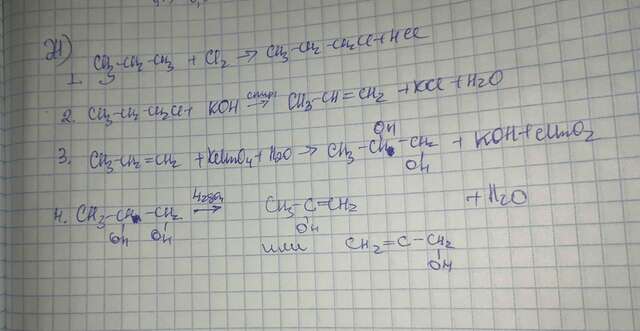 Ж)
1. CH₃-CH₂-CH₃ + Cl₂ → CH₃-CH₂-CH₂Cl + HCl
2. CH₃-CH₂-CH₂Cl + KOH спирт → CH₃-CH=CH₂ + KCl + H₂O
OH
3. CH₃-CH=CH₂ + KMnO₄ + H₂O → CH₃-CH-CH₂ + KOH + MnO₂
OH
4. CH₃-CH-CH₂ H₂SO₄ → CH₃-C=CH₂ + H₂O
OH OH OH
или CH₂=C-CH₂
OH